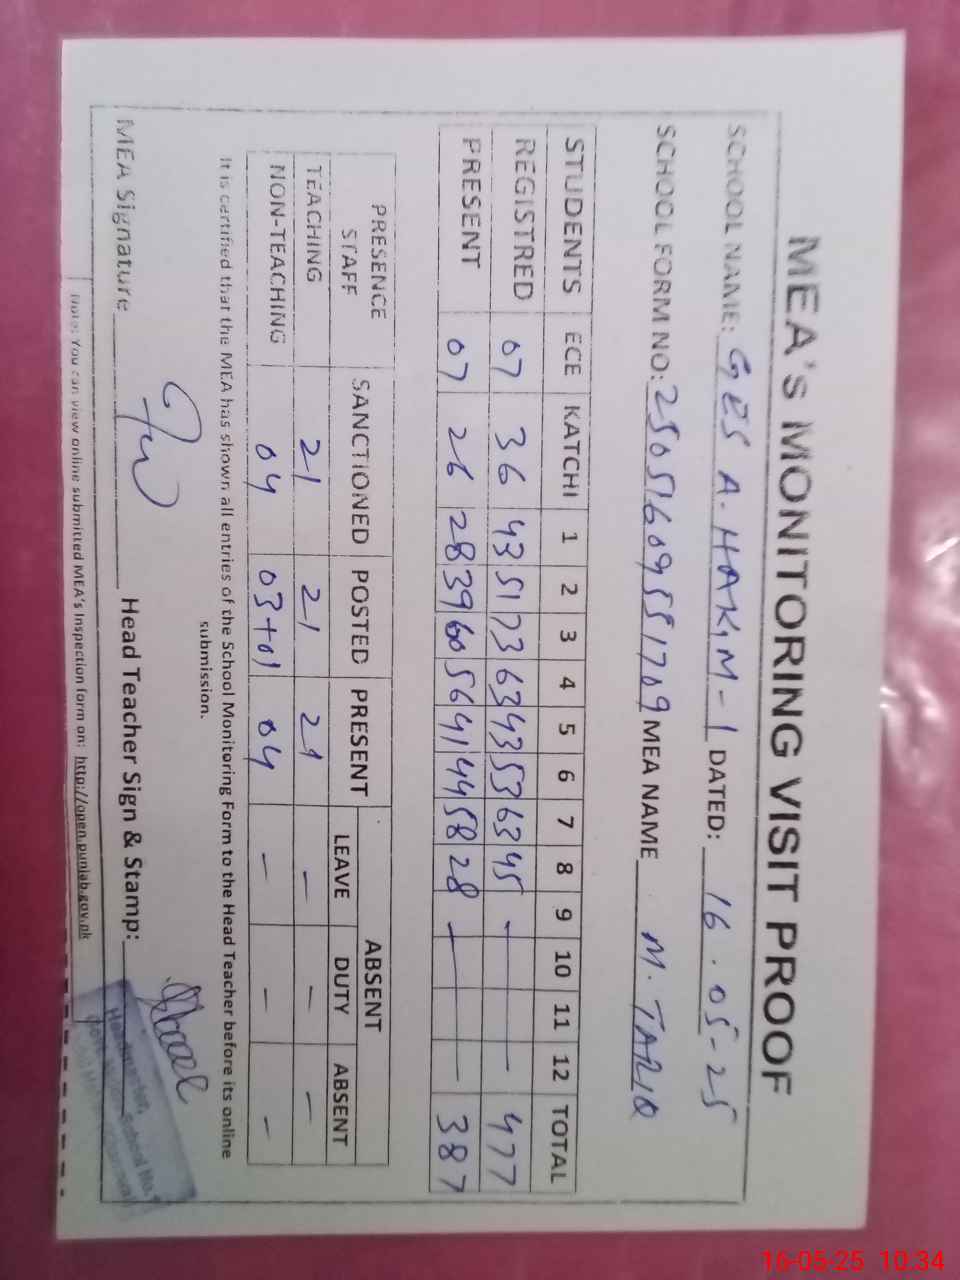 MEA's MONITORING VISIT PROOF
SCHOOL NAME: GES A. HAKIM - 1 DATED: 16.05-25
SCHOOL FORM NO: 25051609551709 MEA NAME M. TARIQ
STUDENTS ECE KATCHI 1 2 3 4 5 6 7 8 9 10 11 12 TOTAL
REGISTRED 07 36 43 51 73 63 43 53 63 45 - - 477
PRESENT 07 26 28 39 60 56 41 44 58 28 - - 387
PRESENCE STAFF SANCTIONED POSTED PRESENT ABSENT
LEAVE DUTY ABSENT
TEACHING 21 21 21 - - -
NON-TEACHING 04 03+01 04 - - -
It is certified that the MEA has shown all entries of the School Monitoring Form to the Head Teacher before its online
submission.
MEA Signature Head Teacher Sign & Stamp:
Headmaster,
School No.
Note: You can view online submitted MEA's Inspection form on: http://open.punjab.gov.pk
16-05-25 10:34